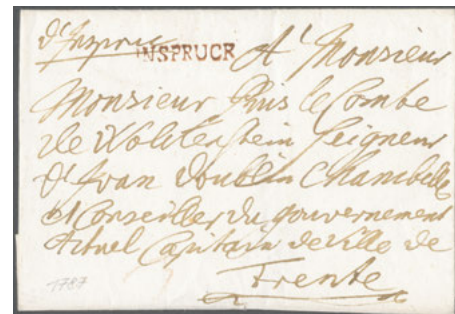 d'Inspruc
INSPRUCK
A Monsieur
Monsieur le Combe
de Wolckenstein Seigneur
d'Ivan Chambellan
et Conseiller du gouvernement
Actuel Capitain de Ville de
Trente
1787